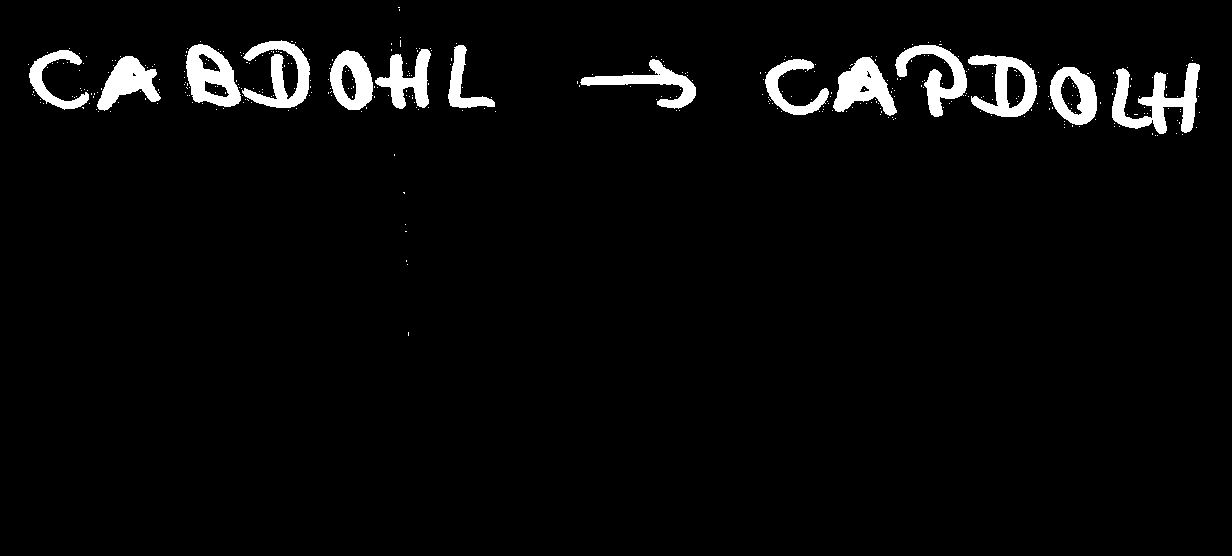 CABDOHL → CAPDOLH